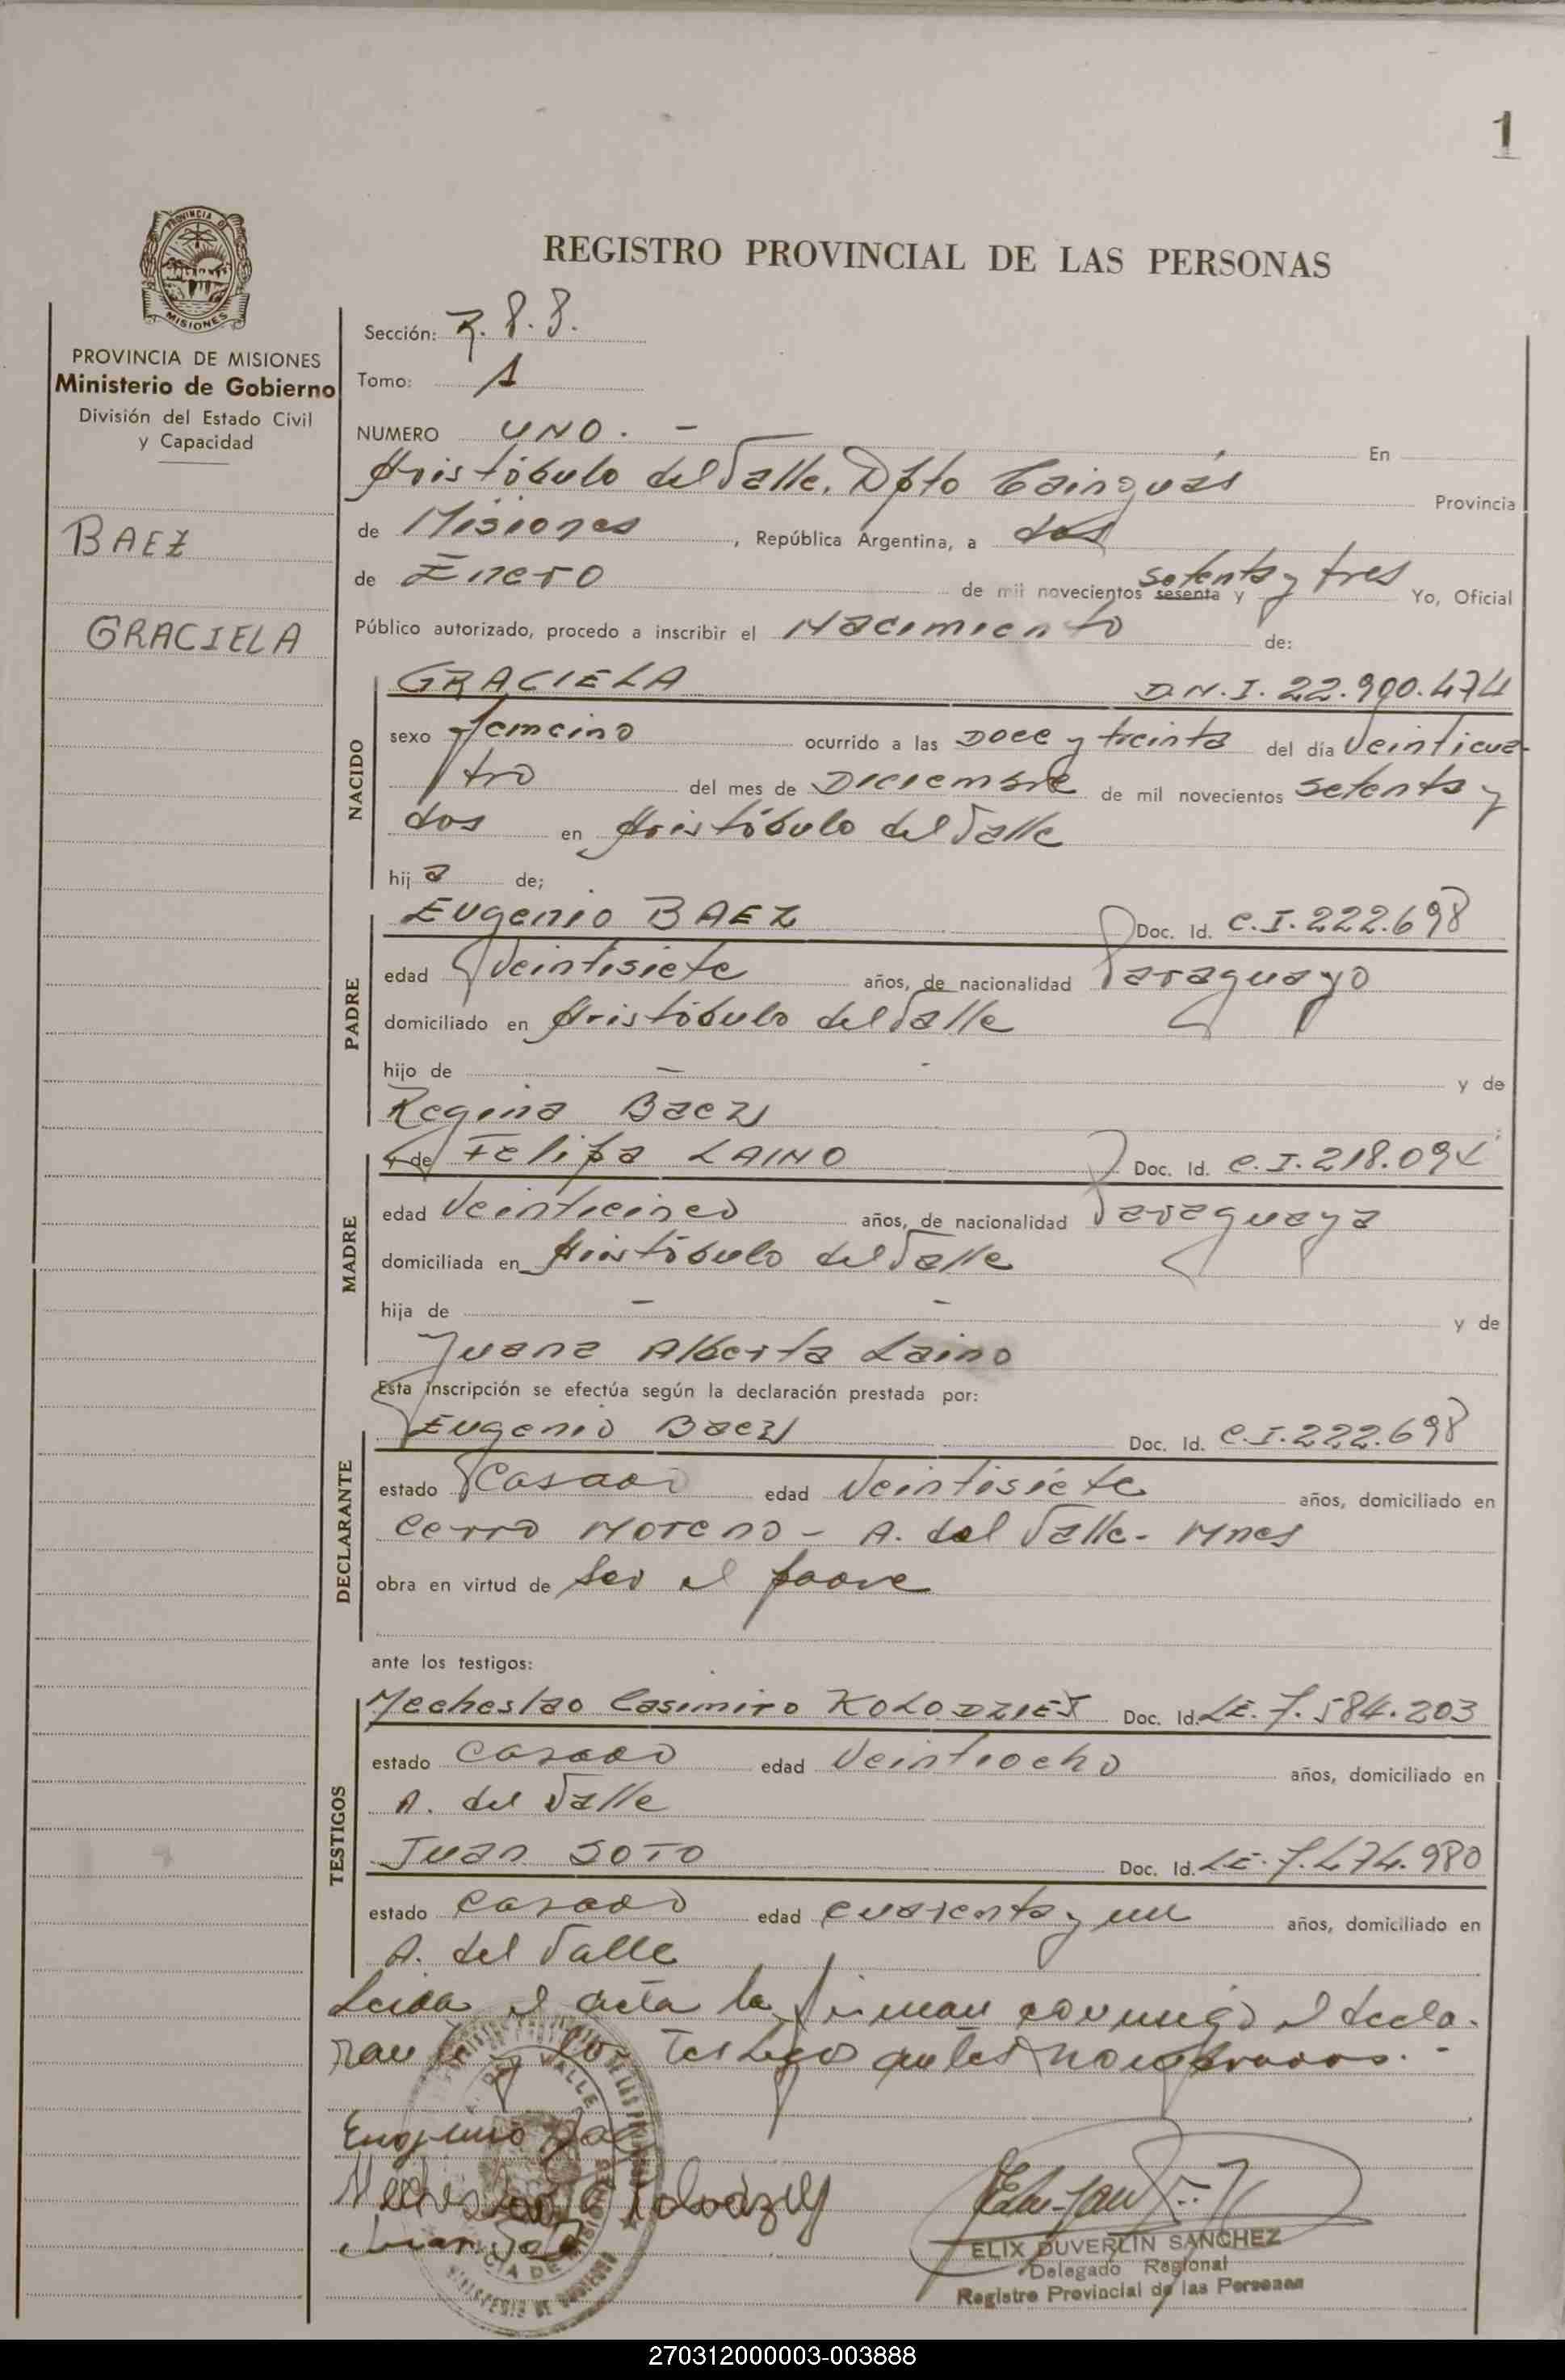 1
REGISTRO PROVINCIAL DE LAS PERSONAS
PROVINCIA DE MISIONES
Ministerio de Gobierno
División del Estado Civil
y Capacidad
BAEZ
GRACIELA
Sección:
Tomo: 1
NUMERO UNO. - En
Aristóbulo del Valle, Dpto Cainguás Provincia
de Misiones, República Argentina, a dos
de Enero de mil novecientos sesenta y setenta y tres Yo, Oficial
Público autorizado, procedo a inscribir el Nacimiento de:
NACIDO
GRACIELA D.N.I. 22.900.474
sexo femeino ocurrido a las Doce y treinta del día veinticua-
tro del mes de Diciembre de mil novecientos setenta y
dos en Aristóbulo del Valle
hija de;
PADRE
Eugenio BAEZ Doc. Id. C.I. 222.698
edad Veintisiete años, de nacionalidad Paraguayo
domiciliado en Aristóbulo del Valle
hijo de - - y de
Regina Baez
MADRE
y de Felipa LAINO Doc. Id. C.I. 218.094
edad Veinticinco años, de nacionalidad Paraguaya
domiciliada en Aristóbulo del Valle
hija de - - y de
Juana Alberta Laino
Esta inscripción se efectúa según la declaración prestada por:
DECLARANTE
Eugenio Baez Doc. Id. C.I. 222.698
estado Casado edad Veintisiete años, domiciliado en
Cerro Moreno - A. del Valle - Mnes
obra en virtud de ser el padre
ante los testigos:
TESTIGOS
Mecheslao Casimiro KOLODZIEJ Doc. Id. LE. 7.584.203
estado Casado edad Veintiocho años, domiciliado en
A. del Valle
Juan SOTO Doc. Id. LE. 7.474.980
estado Casado edad cuarenta y un años, domiciliado en
A. del Valle
Leida el acta la firman conmigo el decla-
rante y los Testigos antes nombrados. -
Eugenio Baez
Juan Soto
ELIX DUVERLIN SANCHEZ
Delegado Regional
Registro Provincial de las Personas
270312000003-003888